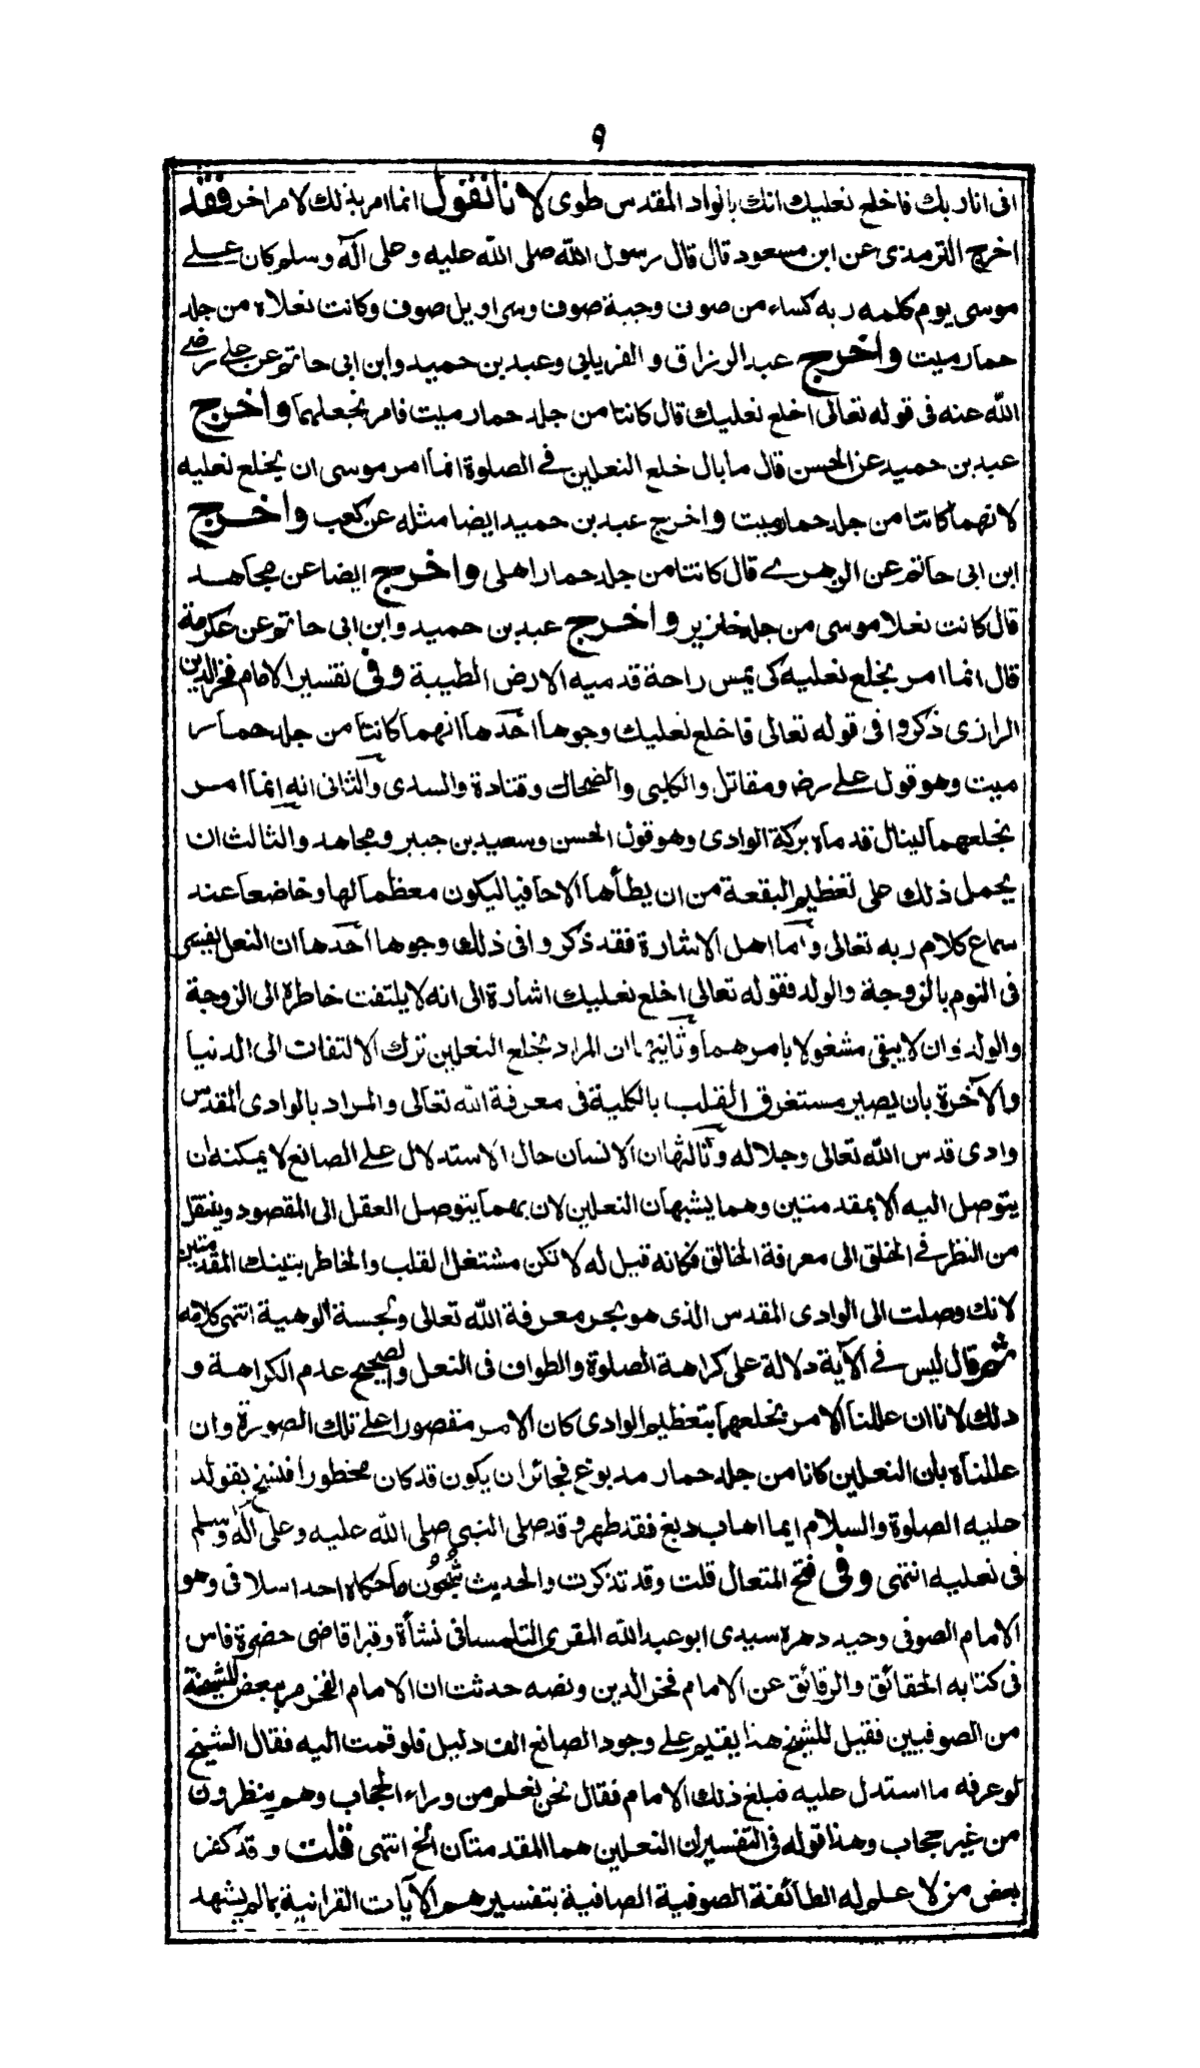 ٩
انى انا ربك فاخلع نعليك انك بالواد المقدس طوى لا نا نقول انما امر بذلك لامر اخر فقد
اخرج الترمذى عن ابن مسعود قال قال رسول الله صلى الله عليه وعلى آله وسلم كان على
موسى يوم كلمه ربه كساء من صوف وجبة صوف وسراويل صوف وكانت نعلاه من جلد
حمار ميت واخرج عبد الرزاق و الفريابي وعبد بن حميد وابن ابى حاتم عن على رضى
الله عنه فى قوله تعالى اخلع نعليك قال كانتا من جلد حمار ميت فامر بخعلهما واخرج
عبد بن حميد عن الحسن قال ما بال خلع النعلين فى الصلوة انما امر موسى ان يخلع نعليه
لانهما كانتا من جلد حمار ميت واخرج عبد بن حميد ايضا مثله عن كعب واخرج
ابن ابى حاتم عن الزهرى قال كانتا من جلد حمار اهلى واخرج ايضا عن مجاهد
قال كانت نعلا موسى من جلد خنزير واخرج عبد بن حميد وابن ابى حاتم عن عكرمة
قال انما امر بخلع نعليه كى يمس راحة قدميه الارض الطيبة وفى تفسير الامام فخر الدين
الرازى ذكروا فى قوله تعالى فاخلع نعليك وجوها احدها انهما كانتا من جلد حمار
ميت وهو قول على رضـ ومقاتل والكلبى والضحاك وقتادة والسدى والثانى انه انما امر
بخلعهما لينال قدماه بركة الوادى وهو قول الحسن وسعيد بن جبير ومجاهد والثالث ان
يحمل ذلك على تعظيم البقعة من ان يطأها الا حافيا ليكون معظما لها وخاضعا عند
سماع كلام ربه تعالى واما اهل الاشارة فقد ذكروا فى ذلك وجوها احدها ان النعل يفسر
فى النوم بالزوجة والولد فقوله تعالى اخلع نعليك اشارة الى انه لا يلتفت خاطره الى الزوجة
والولد وان لا يبقى مشغولا بامرهما وثانيها ان المراد بخلع النعلين ترك الالتفات الى الدنيا
والآخرة بان يصير مستغرق القلب بالكلية فى معرفة الله تعالى والمراد بالوادى المقدس
وادى قدس الله تعالى وجلاله وثالثها ان الانسان حال الاستدلال على الصانع لا يمكنه ان
يتوصل اليه الا بمقدمتين وهما يشبهان النعلين لان بهما يتوصل العقل الى المقصود وينتقل
من النظر فى الخلق الى معرفة الخالق فكانه قيل له لا تكن مشتغل القلب والخاطر بتينك المقدمتين
لانك وصلت الى الوادى المقدس الذى هو بحر معرفة الله تعالى ولجسة الوهية انتهى كلامه
ثم قال ليس فى الآية دلالة على كراهة الصلوة والطواف فى النعل والصحيح عدم الكراهة و
ذلك لانا ان عللنا الامر بخلعهما بتعظيم الوادى كان الامر مقصورا على تلك الصورة وان
عللناه بان النعلين كانا من جلد حمار مدبوغ فجائز ان يكون قد كان محظورا فنسخ بقوله
عليه الصلوة والسلام ايما اهاب دبغ فقد طهر وقد صلى النبى صلى الله عليه وعلى آله وسلم
فى نعليه انتهى وفى فتح المتعال قلت وقد تذكرت والحديث شُجُون ما حكاه احد اسلافى وهو
الامام الصوفى وحيد دهره سيدى ابو عبد الله المقرى التلمسانى نشأة وقبرا قاضى حضرة فاس
فى كتابه الحقائق والرقائق عن الامام فخر الدين ونصه حدثت ان الامام الفخر مر ببعض الشيخة
من الصوفيين فقيل للشيخ هذا يقيم على وجود الصانع الف دليل فلو قمت اليه فقال الشيخ
لو عرفه ما استدل عليه فبلغ ذلك الامام فقال نحن نعلم من وراء الحجاب وهم ينظرون
من غير حجاب وهذا قوله فى التفسير ان النعلين هما المقدمتان الخ انتهى قلت وقد كفر
بعض من لا علم له الطائفة الصوفية الصافية بتفسيرهم الآيات القرانية بما لم يشهد